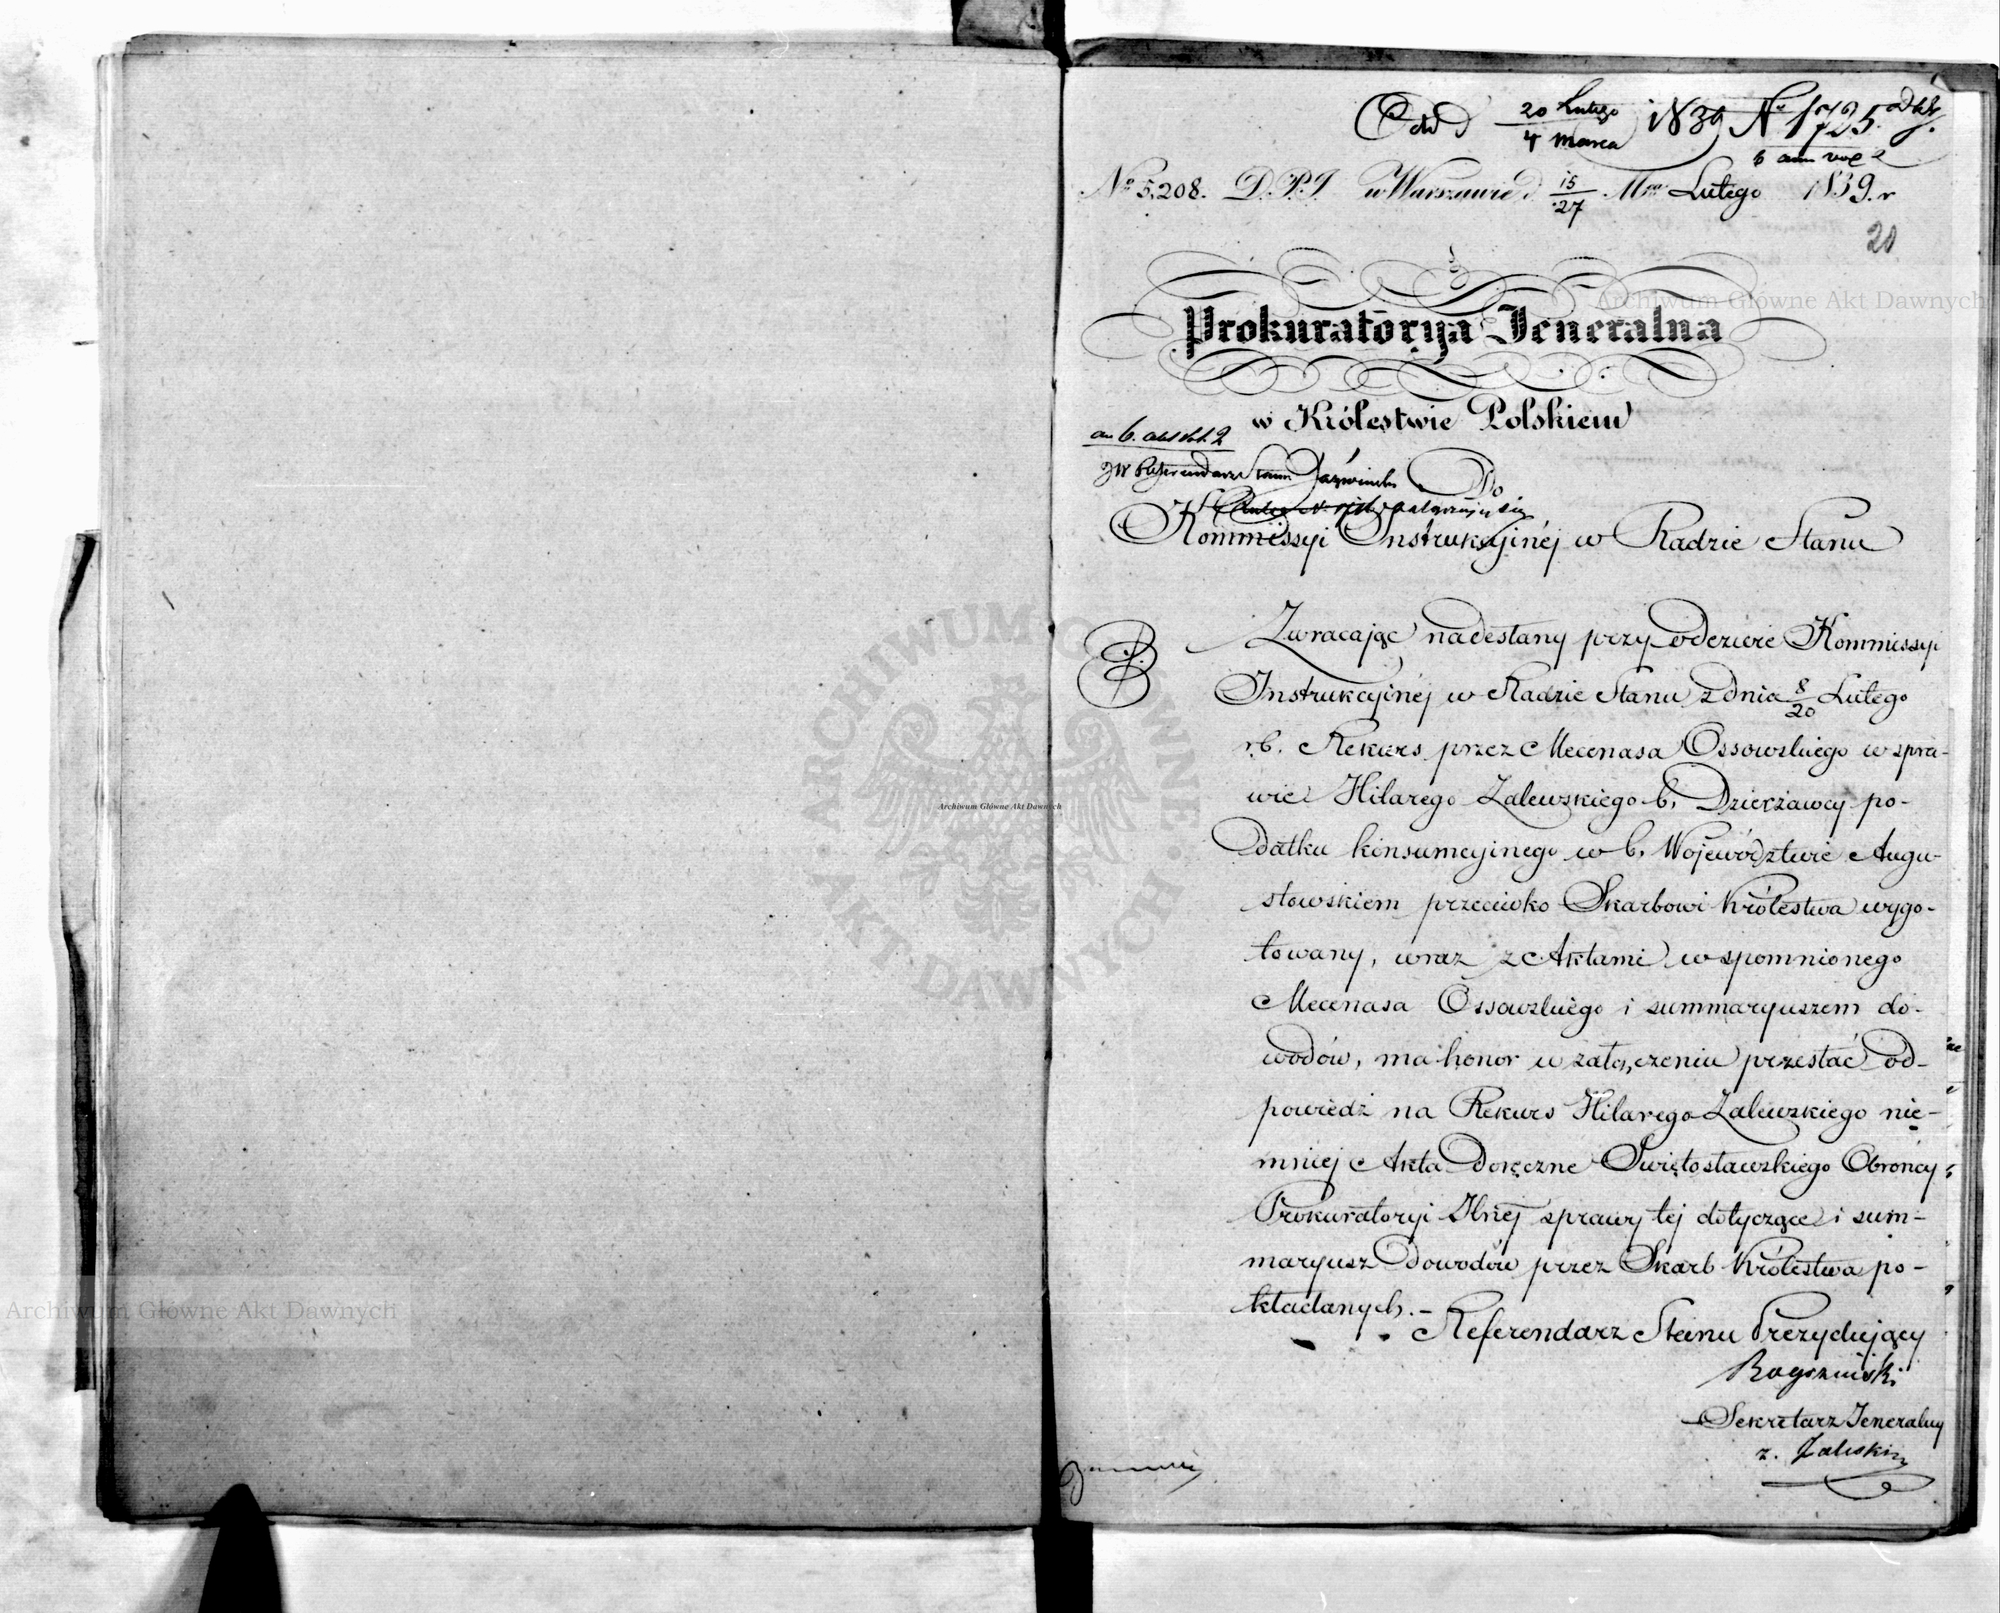 Odd 20 Lutego / 4 Marca 1839 Nr 1725.
Nro 5,208. D.P.I. w Warszawie d. 15/27 Mca Lutego 1839. r
20
Prokuratorya Jeneralna
w Królestwie Polskiem
JW Referendarz Stanu
Do
Kommissyi Instrukcyjnéj w Radzie Stanu
Zwracając nadesłany przy odezwie Kommissyi
Instrukcyjnéj w Radzie Stanu z dnia 8/20 Lutego
r.b. Rekurs przez Mecenasa Ossowskiego w spra-
wie Hilarego Zalewskiego b. Dzierżawcy po-
datku konsumcyjnego w b. Województwie Augu-
stowskiem przeciwko Skarbowi Królestwa wygo-
towany, wraz z Aktami wspomnionego
Mecenasa Ossowskiego i summaryuszem do-
wodów, ma honor w załączeniu przesłać od-
powiedź na Rekurs Hilarego Zalewskiego nie-
mniej Akta Doręczne Świętosławskiego Obrońcy
Prokuratoryi Jlnej sprawy tej dotyczące i sum-
maryusz Dowodów przez Skarb Królestwa po-
kładanych. –
Referendarz Stanu Prezydujący
Sekretarz Jeneralny
z. Zaleski
Archiwum Główne Akt Dawnych
ARCHIWUM GŁÓWNE AKT DAWNYCH
Archiwum Główne Akt Dawnych
Archiwum Główne Akt Dawnych